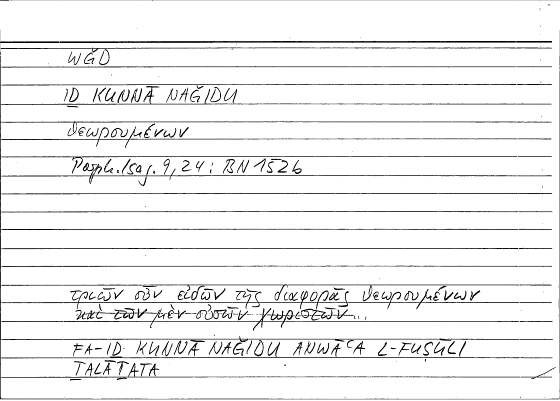 WǦD
I̲D̲ KUNNĀ NAǦIDU
θεωρουμένων
Porph. Isag. 9, 24 : BN 152b
τριῶν οὖν εἰδῶν τῆς διαφορᾶς θεωρουμένων
καὶ τῶν μὲν οὐσῶν χωριστῶν...
FA-I̲D̲ KUNNĀ NAǦIDU ANWĀʿA L-FUṢŪLI
T̲ALĀT̲ATA